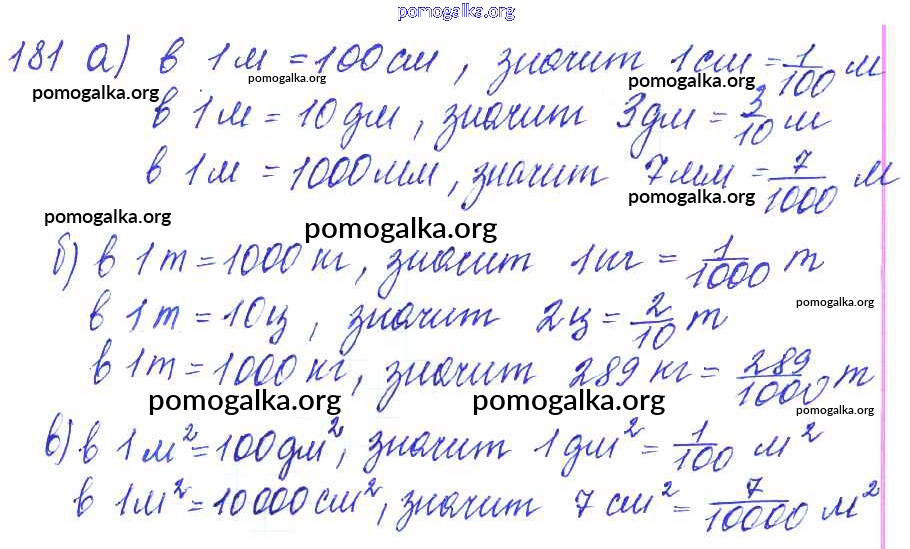 pomogalka.org
181 а) в 1 м = 100 см, значит 1 см = 1/100 м
pomogalka.org pomogalka.org pomogalka.org
в 1 м = 10 дм, значит 3 дм = 3/10 м
в 1 м = 1000 мм, значит 7 мм = 7/1000 м
pomogalka.org pomogalka.org pomogalka.org
б) в 1 т = 1000 кг, значит 1 кг = 1/1000 т
pomogalka.org
в 1 т = 10 ц, значит 2 ц = 2/10 т
в 1 т = 1000 кг, значит 289 кг = 289/1000 т
pomogalka.org pomogalka.org pomogalka.org
в) в 1 м² = 100 дм², значит 1 дм² = 1/100 м²
в 1 м² = 10000 см², значит 7 см² = 7/10000 м²